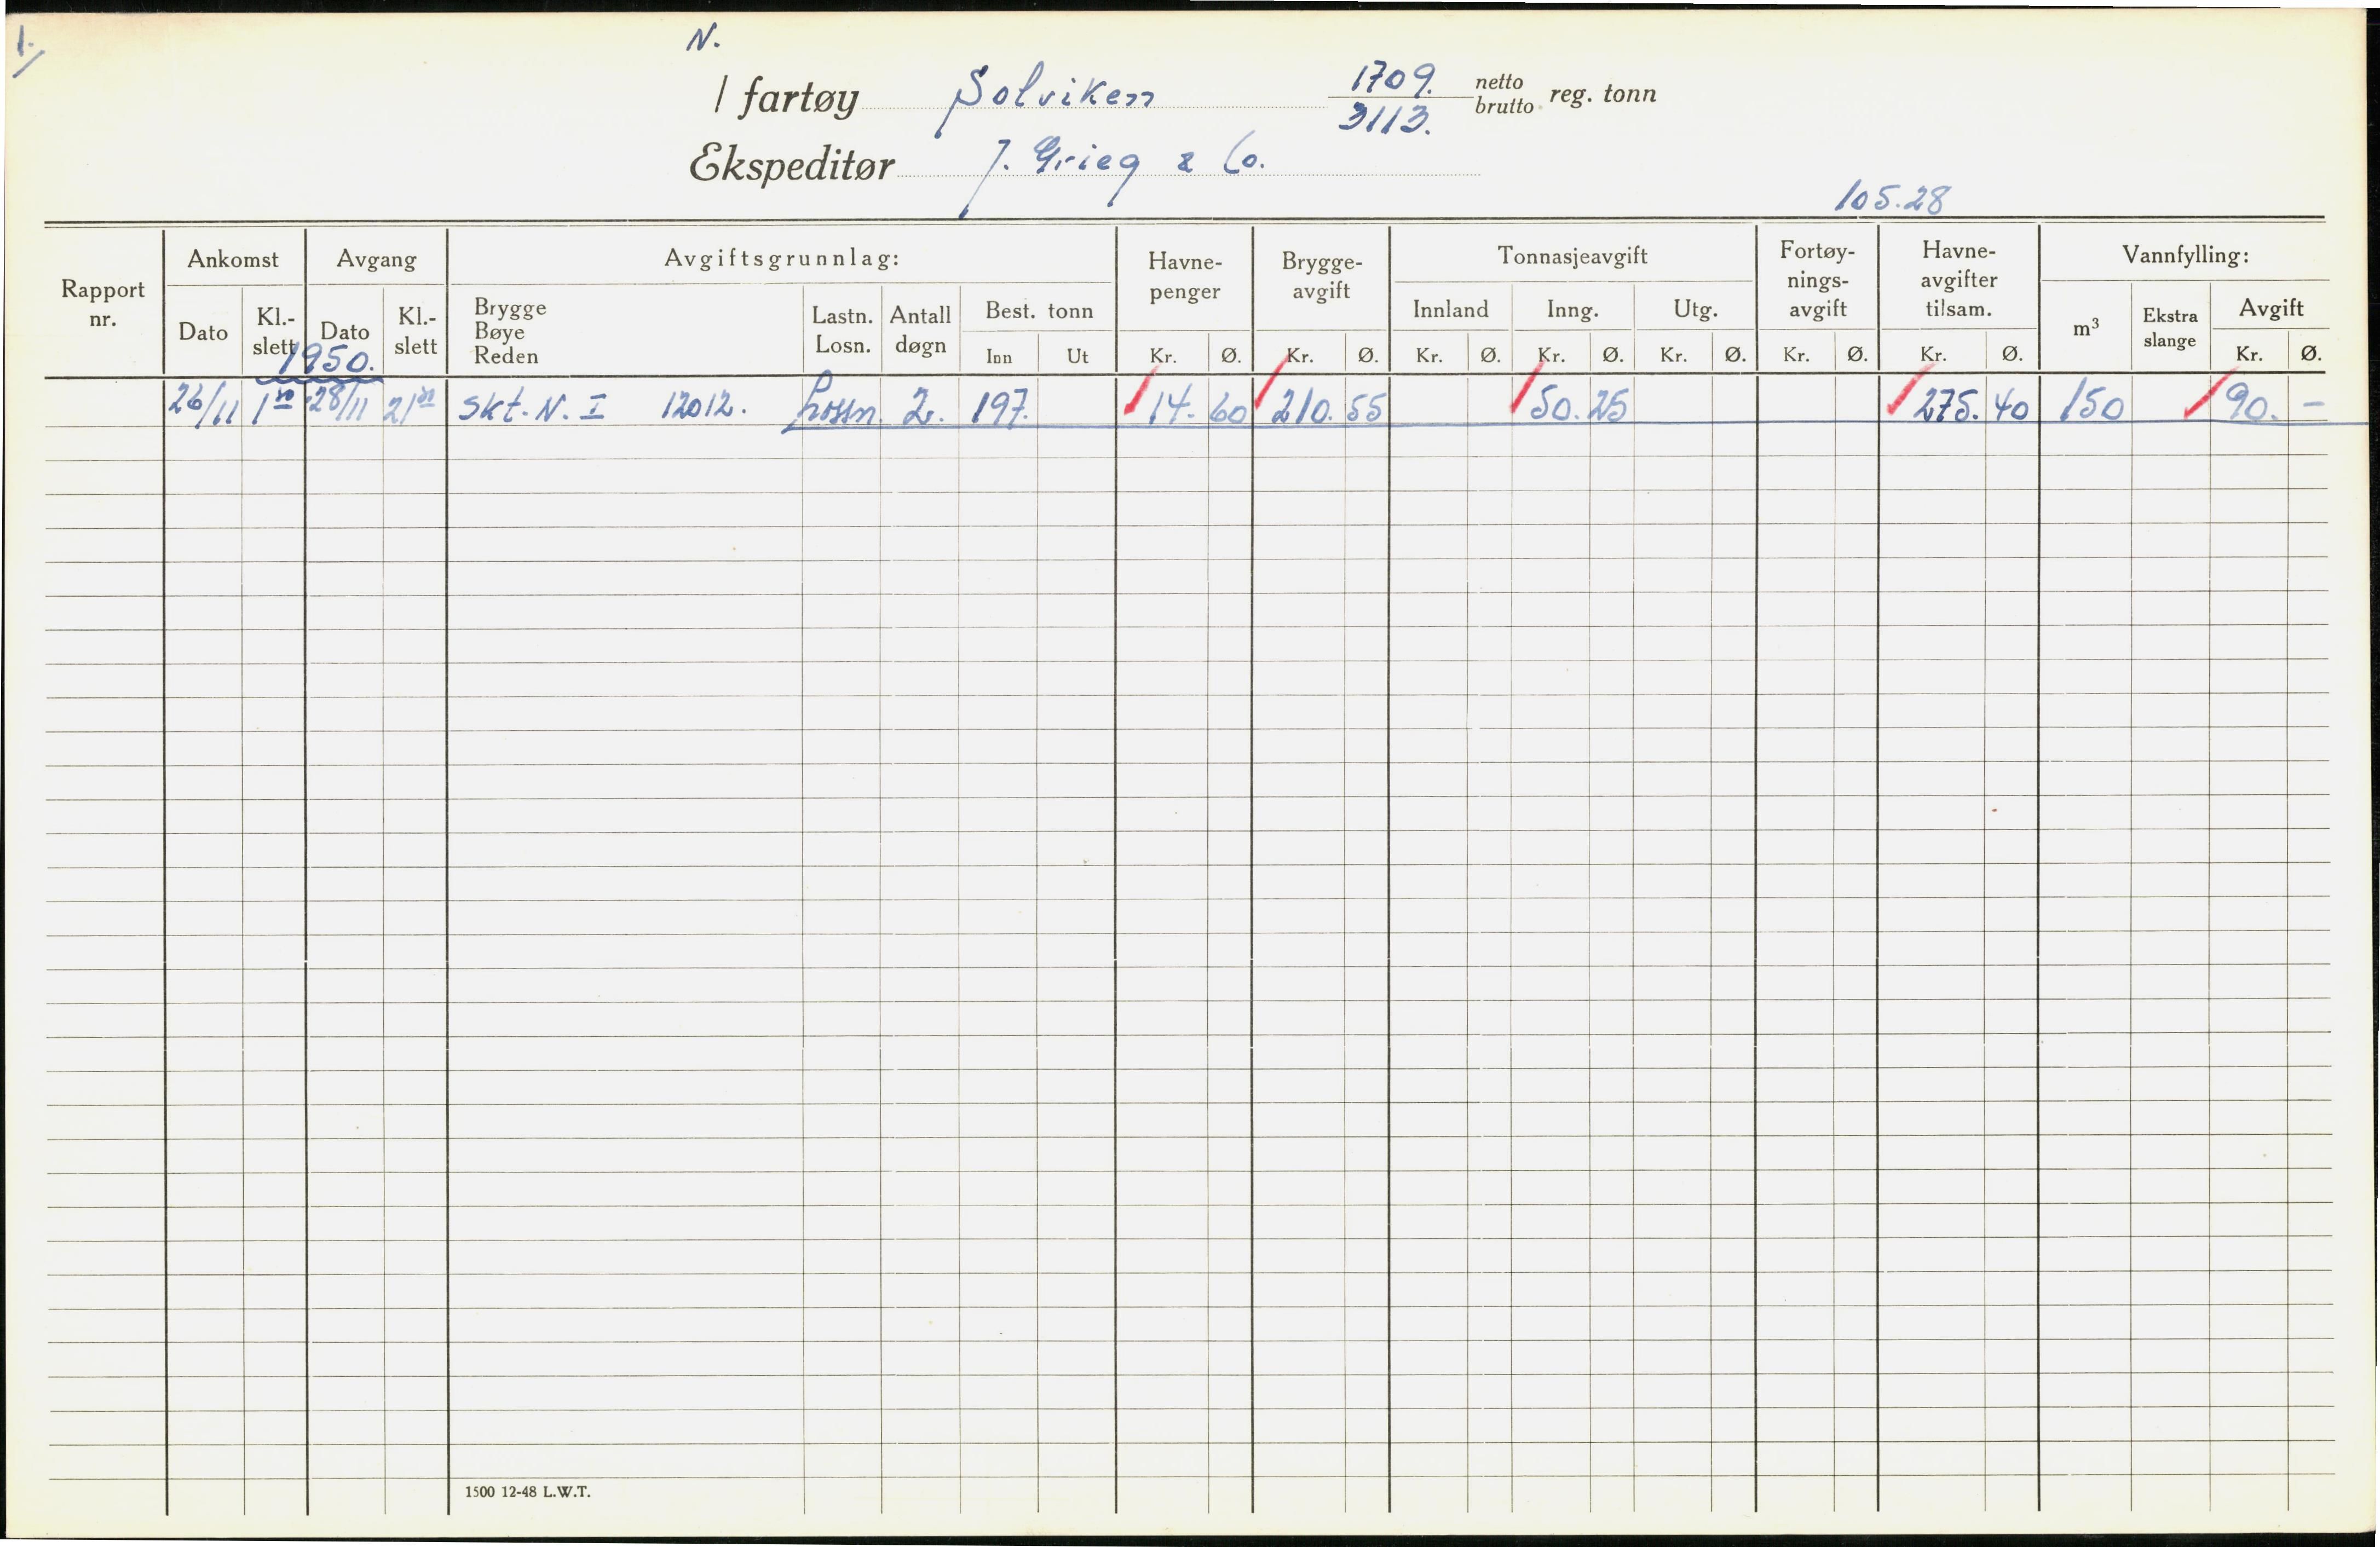 1.
N.
/ fartøy Solviken 1709. netto
3113. brutto reg. tonn
Ekspeditør J. Grieg & Co.
105.28
Rapport nr. Ankomst Avgang Avgiftsgrunnlag: Havne-penger Brygge-avgift Tonnasjeavgift Fortøy-nings-avgift Havne-avgifter tilsam. Vannfylling:
Dato Kl.-slett Dato Kl.-slett Brygge Bøye Reden Lastn. Losn. Antall døgn Best. tonn Innland Inng. Utg. m³ Ekstra slange Avgift
Inn Ut Kr. Ø. Kr. Ø. Kr. Ø. Kr. Ø. Kr. Ø. Kr. Ø. Kr. Ø. Kr. Ø.
1950.
26/11 28/11 Skt. N. I 12012. Lossn. 2. 197. 14. 60 210. 55 50. 25 275. 40 150 90. –
1500 12-48 L.W.T.